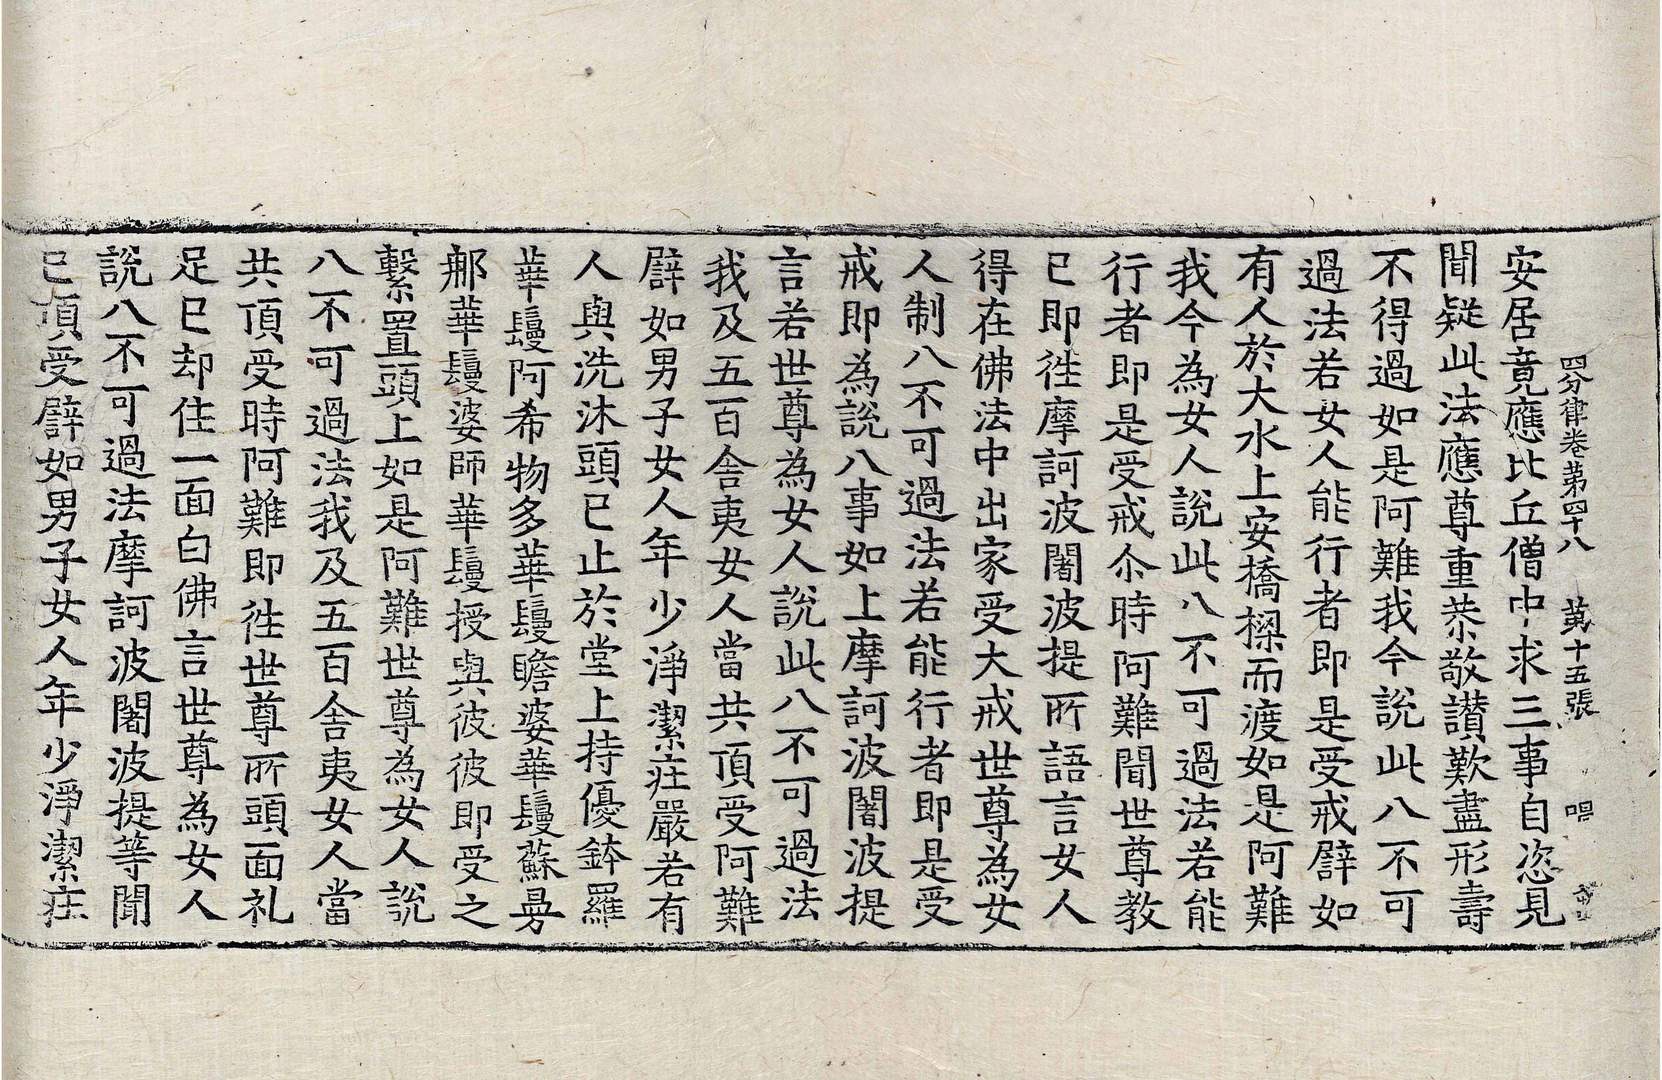 四分律卷第四十八 苐十五張 唱
安居竟應比丘僧中求三事自恣見
聞疑此法應尊重恭敬讃歎盡形壽
不得過如是阿難我今說此八不可
過法若女人能行者即是受戒譬如
有人於大水上安橋樑而渡如是阿難
我今為女人說此八不可過法若能
行者即是受戒尒時阿難聞世尊教
已即徃摩訶波闍波提所語言女人
得在佛法中出家受大戒世尊為女
人制八不可過法若能行者即是受
戒即為說八事如上摩訶波闍波提
言若世尊為女人說此八不可過法
我及五百舍夷女人當共頂受阿難
譬如男子女人年少淨潔莊嚴若有
人與洗沐頭已止於堂上持優鉢羅
華鬘阿希物多華鬘瞻婆華鬘蘇曼
那華鬘婆師華鬘授與彼彼即受之
繫置頭上如是阿難世尊為女人說
八不可過法我及五百舍夷女人當
共頂受時阿難即徃世尊所頭面礼
足已却住一面白佛言世尊為女人
說八不可過法摩訶波闍波提等聞
已頂受譬如男子女人年少淨潔莊